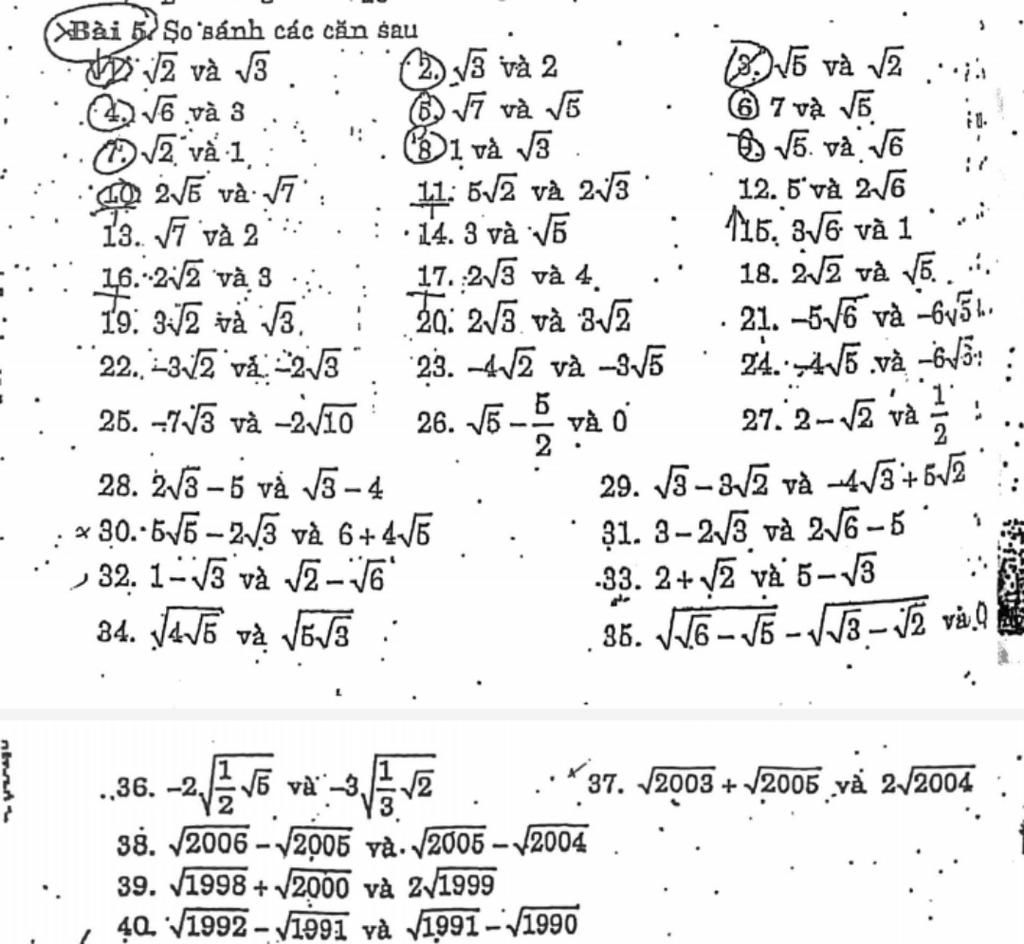 Bài 5. So sánh các căn sau
1. √2 và √3 2. √3 và 2 3. √5 và √2
4. √6 và 3 5. √7 và √5 6 7 và √5
7. √2 và 1 8 1 và √3 9. √5 và √6
10 2√5 và √7 11. 5√2 và 2√3 12. 5 và 2√6
13. √7 và 2 14. 3 và √5 15. 3√6 và 1
16. 2√2 và 3 17. 2√3 và 4 18. 2√2 và √5
19. 3√2 và √3 20. 2√3 và 3√2 21. -5√6 và -6√5
22. -3√2 và -2√3 23. -4√2 và -3√5 24. -4√5 và -6√3
25. -7√3 và -2√10 26. √5 - 5/2 và 0 27. 2 - √2 và 1/2
28. 2√3 - 5 và √3 - 4 29. √3 - 3√2 và -4√3 + 5√2
30. 5√5 - 2√3 và 6 + 4√5 31. 3 - 2√3 và 2√6 - 5
32. 1 - √3 và √2 - √6 33. 2 + √2 và 5 - √3
34. √(4√5) và √(5√3) 35. √(√6 - √5) - √(√3 - √2) và 0
36. -2√(1/2 √5) và -3√(1/3 √2) 37. √2003 + √2005 và 2√2004
38. √2006 - √2005 và √2005 - √2004
39. √1998 + √2000 và 2√1999
40. √1992 - √1991 và √1991 - √1990